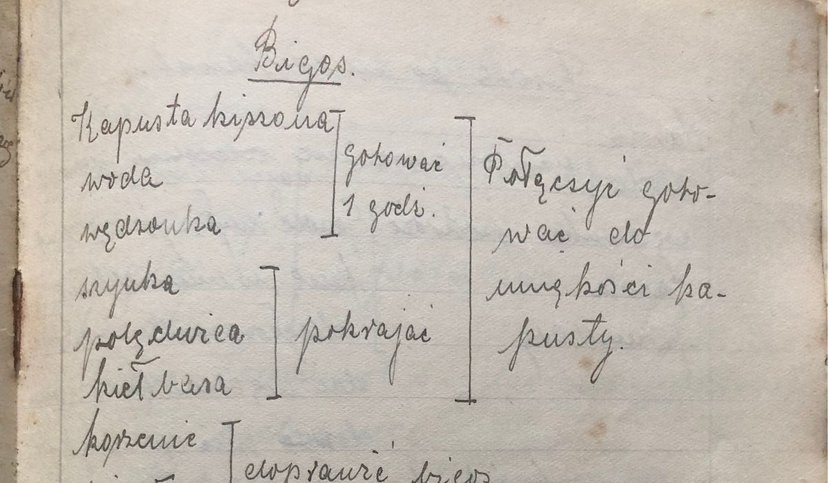 Bigos.
Kapusta kiszona
woda
wędzonka
gotować
1 godz.
szynka
polędwica
kiełbasa
pokrajać
Połączyć goto-
wać do
miękości ka-
pusty.
korzenie
doprawić bigos